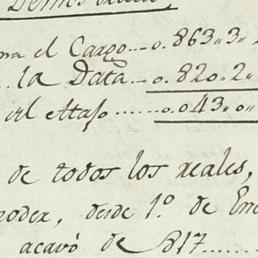 ma el Cargo...o.863"3"2
la Data...o.820"2"
el Atraso......o.043"o"
de todos los reales,
poder, desde 1º. de En
acavó de 817......